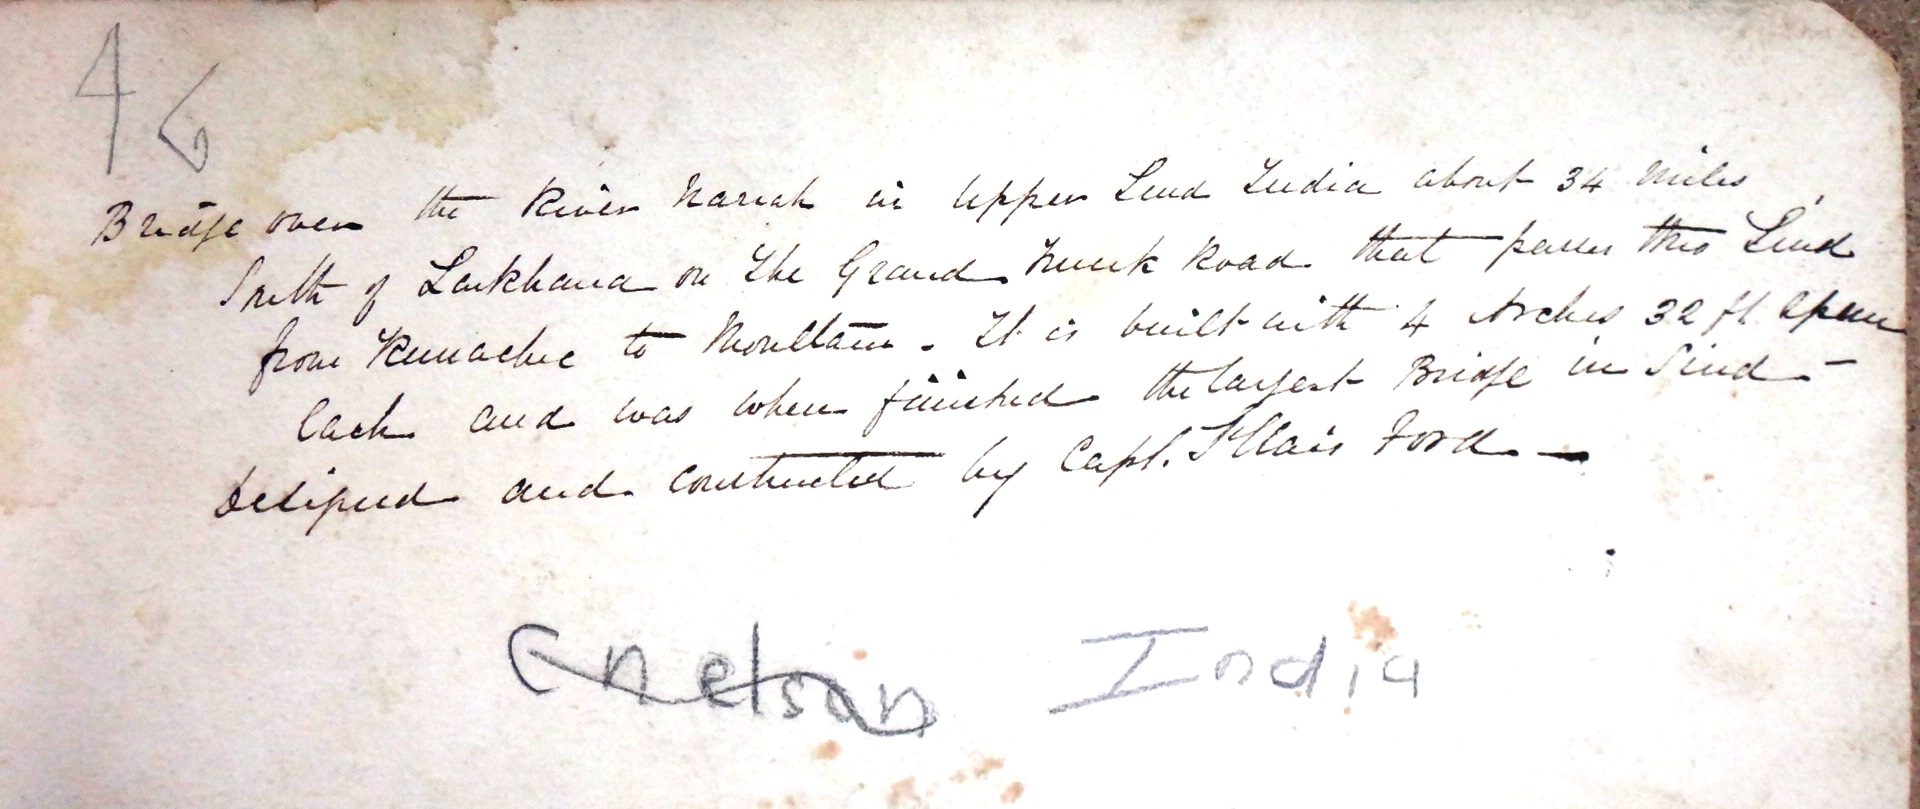 46
Bridge over the River Narrah in Upper Sind India about 34 miles
South of Larkhana on the Grand Trunk Road that passes thro Sind
from Kurrachee to Moultan. It is built with 4 Arches 32 ft Span
Each and was when finished the largest Bridge in Sind -
Designed and constructed by Capt. St Clair Ford. -
Enelson India